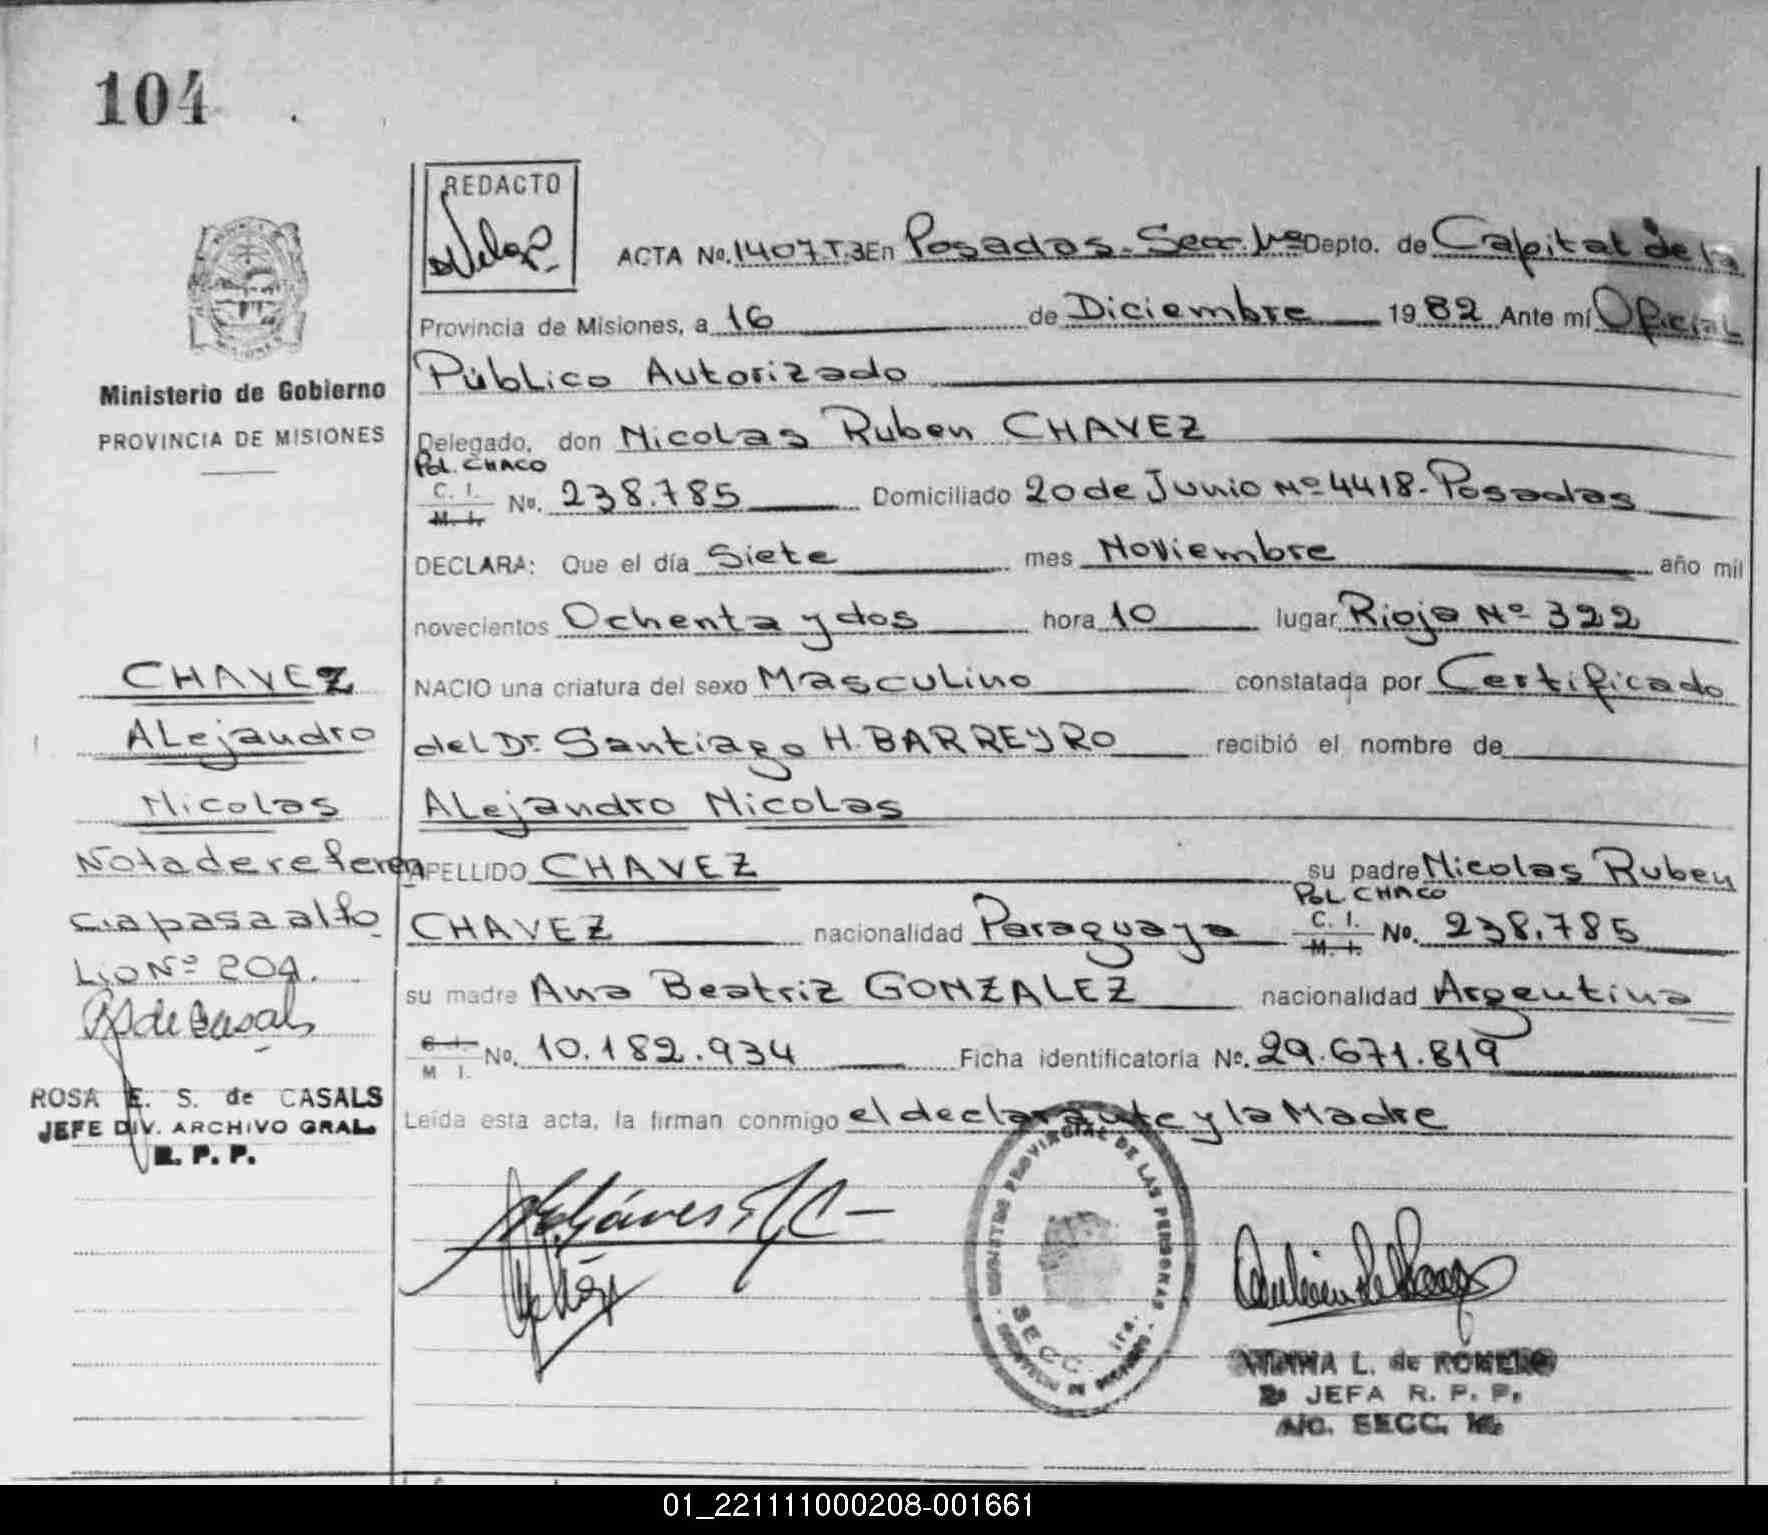 104
REDACTO
ACTA No. 1407 T.3 En Posadas-Secc. 1ra Depto. de Capital de la
Provincia de Misiones, a 16 de Diciembre 1982 Ante mí Oficial
Público Autorizado
Delegado, don Nicolas Ruben CHAVEZ
Pol. CHACO
C. I.
M. I.
No. 238.785 Domiciliado 20 de Junio Nº 4418-Posadas
DECLARA: Que el día Siete mes Noviembre año mil
novecientos Ochenta y dos hora 10 lugar Rioja Nº 322
NACIO una criatura del sexo Masculino constatada por Certificado
del Dr. Santiago H. BARREYRO recibió el nombre de
Alejandro Nicolas
APELLIDO CHAVEZ su padre Nicolas Ruben
Pol. CHACO
CHAVEZ nacionalidad Paraguaya C. I. M. I. No. 238.785
su madre Ana Beatriz GONZALEZ nacionalidad Argentina
C. I. M I. No. 10.182.934 Ficha identificatoria No. 29.671.819
Leída esta acta, la firman conmigo el declarante y la Madre
Ministerio de Gobierno
PROVINCIA DE MISIONES
CHAVEZ
Alejandro
Nicolas
Nota de referen
cia pasa al fo
lio Nº 204.
RS de Casals
ROSA E. S. de CASALS
JEFE DIV. ARCHIVO GRAL.
R. P. P.
REGISTRO PROVINCIAL DE LAS PERSONAS
SECC. 1ra.
L. de ROMERO
JEFA R. P. P.
A/C. SECC. 1a.
01_221111000208-001661